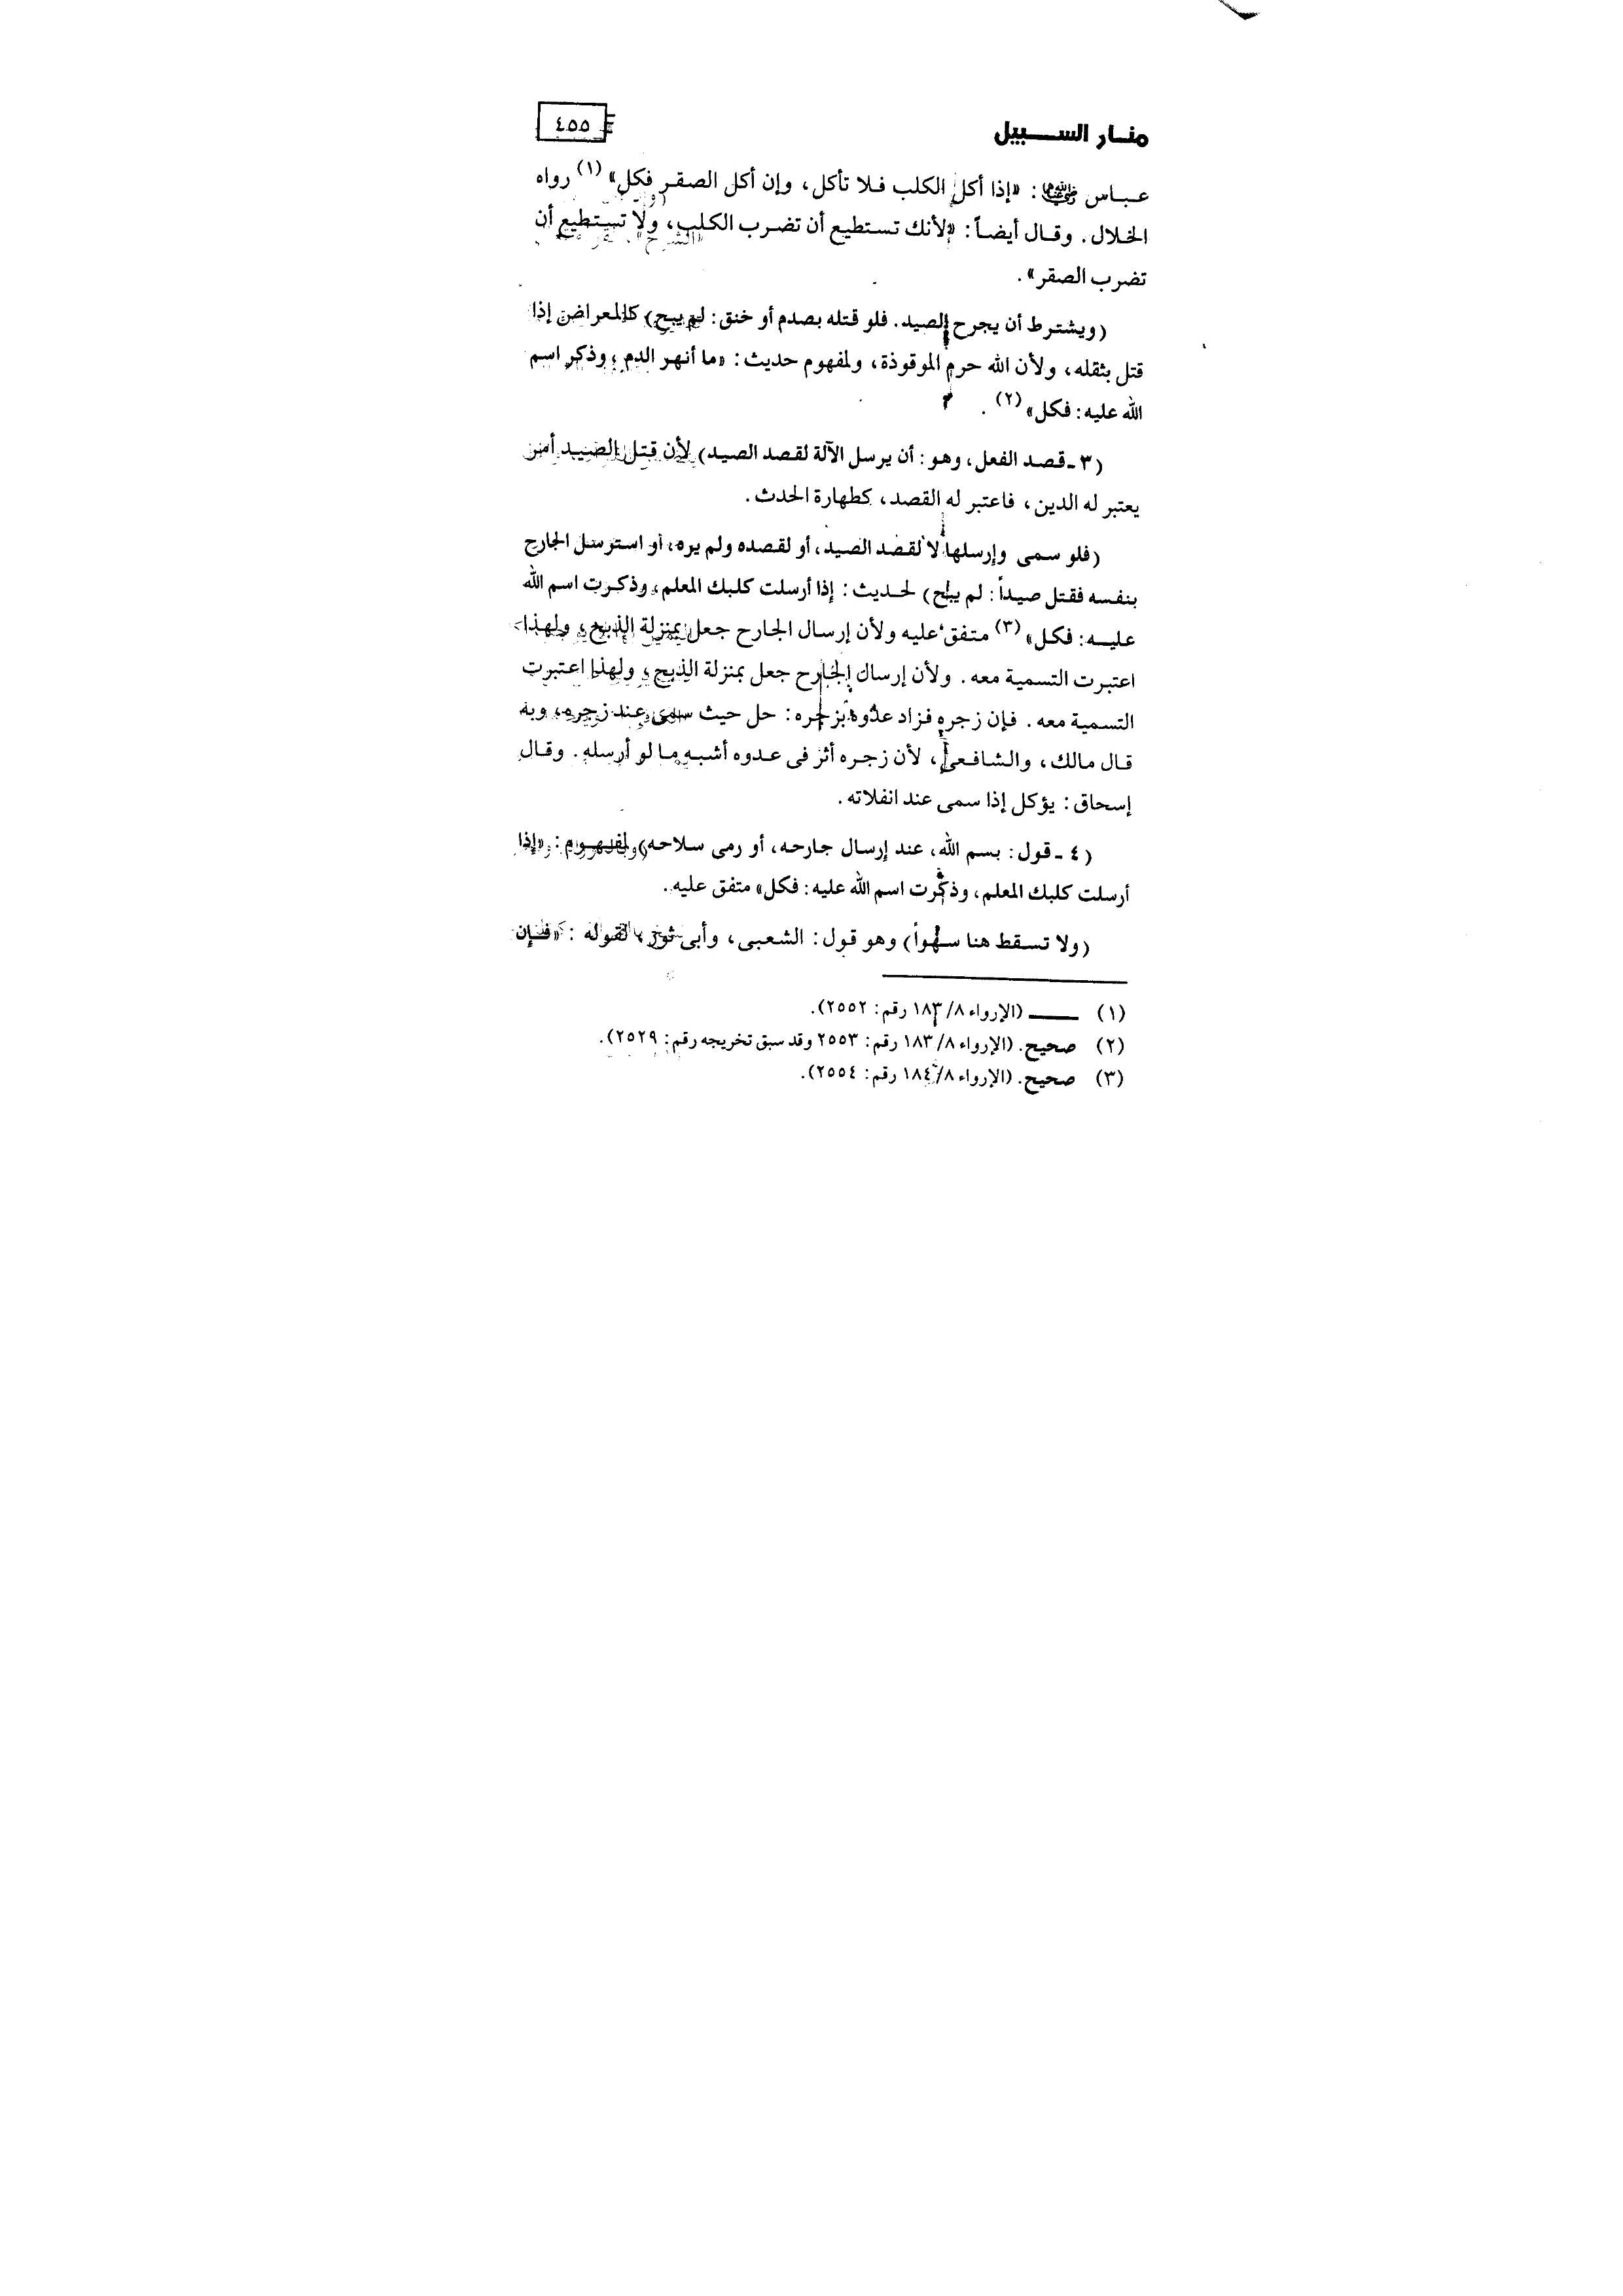 منار السبيل
٤٥٥
عباس رضي الله عنهما: «إذا أكل الكلب فلا تأكل، وإن أكل الصقر فكل» (١) رواه
الخلال. وقال أيضاً: «لأنك تستطيع أن تضرب الكلب، ولا تستطيع أن
تضرب الصقر».
(ويشترط أن يجرح الصيد. فلو قتله بصدم أو خنق: لم يبح) كالمعراض إذا
قتل بثقله، ولأن الله حرم الموقوذة، ولمفهوم حديث: «ما أنهر الدم، وذكر اسم
الله عليه: فكل» (٢).
(٣ - قصد الفعل، وهو: أن يرسل الآلة لقصد الصيد) لأن قتل الصيد أمر
يعتبر له الدين، فاعتبر له القصد، كطهارة الحدث.
(فلو سمى وإرسلها لا لقصد الصيد، أو لقصده ولم يره، أو استرسل الجارح
بنفسه فقتل صيداً: لم يبح) لحديث: إذا أرسلت كلبك المعلم، وذكرت اسم الله
عليه: فكل» (٣) متفق عليه ولأن إرسال الجارح جعل بمنزلة الذبح، ولهذا
اعتبرت التسمية معه. ولأن إرساك الجارح جعل بمنزلة الذبح، ولهذا اعتبرت
التسمية معه. فإن زجره فزاد عدوه بزجره: حل حيث سمى عند زجره، وبه
قال مالك، والشافعى، لأن زجره أثر فى عدوه أشبه ما لو أرسله. وقال
إسحاق: يؤكل إذا سمى عند انفلاته.
(٤ - قول: بسم الله، عند إرسال جارحه، أو رمى سلاحه) لمفهوم: «إذا
أرسلت كلبك المعلم، وذكرت اسم الله عليه: فكل» متفق عليه.
(ولا تسقط هنا سهواً) وهو قول: الشعبى، وأبى ثور، لقوله : «فإن
(١) ــــــ (الإرواء ٨/ ١٨٣ رقم: ٢٥٥٢).
(٢) صحيح. (الإرواء ٨/ ١٨٣ رقم: ٢٥٥٣ وقد سبق تخريجه رقم: ٢٥٢٩).
(٣) صحيح. (الإرواء ٨/ ١٨٤ رقم: ٢٥٥٤).